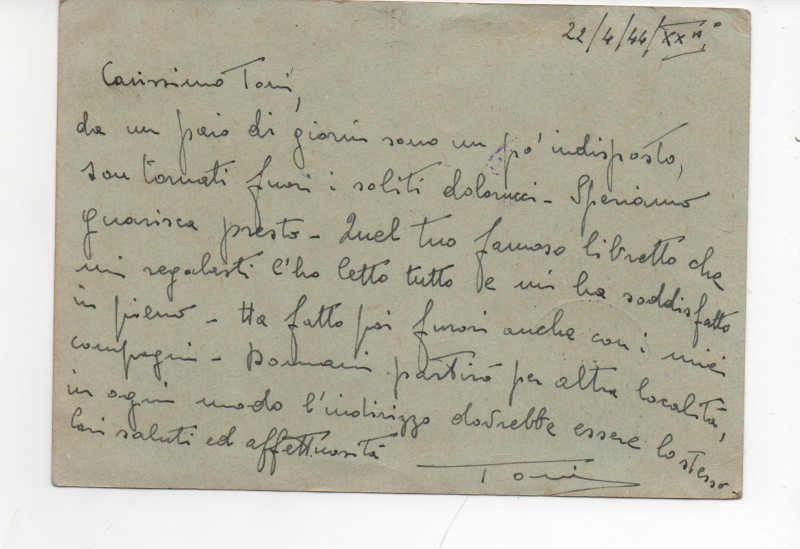 22/4/44/XXII°
Carissimo Toni,
da un paio di giorni sono un po' indisposto,
son tornati fuori i soliti dolorucci - Speriamo
guarisca presto - Quel tuo famoso libretto che
mi regalasti l'ho letto tutto e mi ha soddisfatto
in pieno - Ha fatto poi furori anche con i miei
compagni - Domani partirò per altra località,
in ogni modo l'indirizzo dovrebbe essere lo stesso -
Cari saluti ed affettuosità
Toni